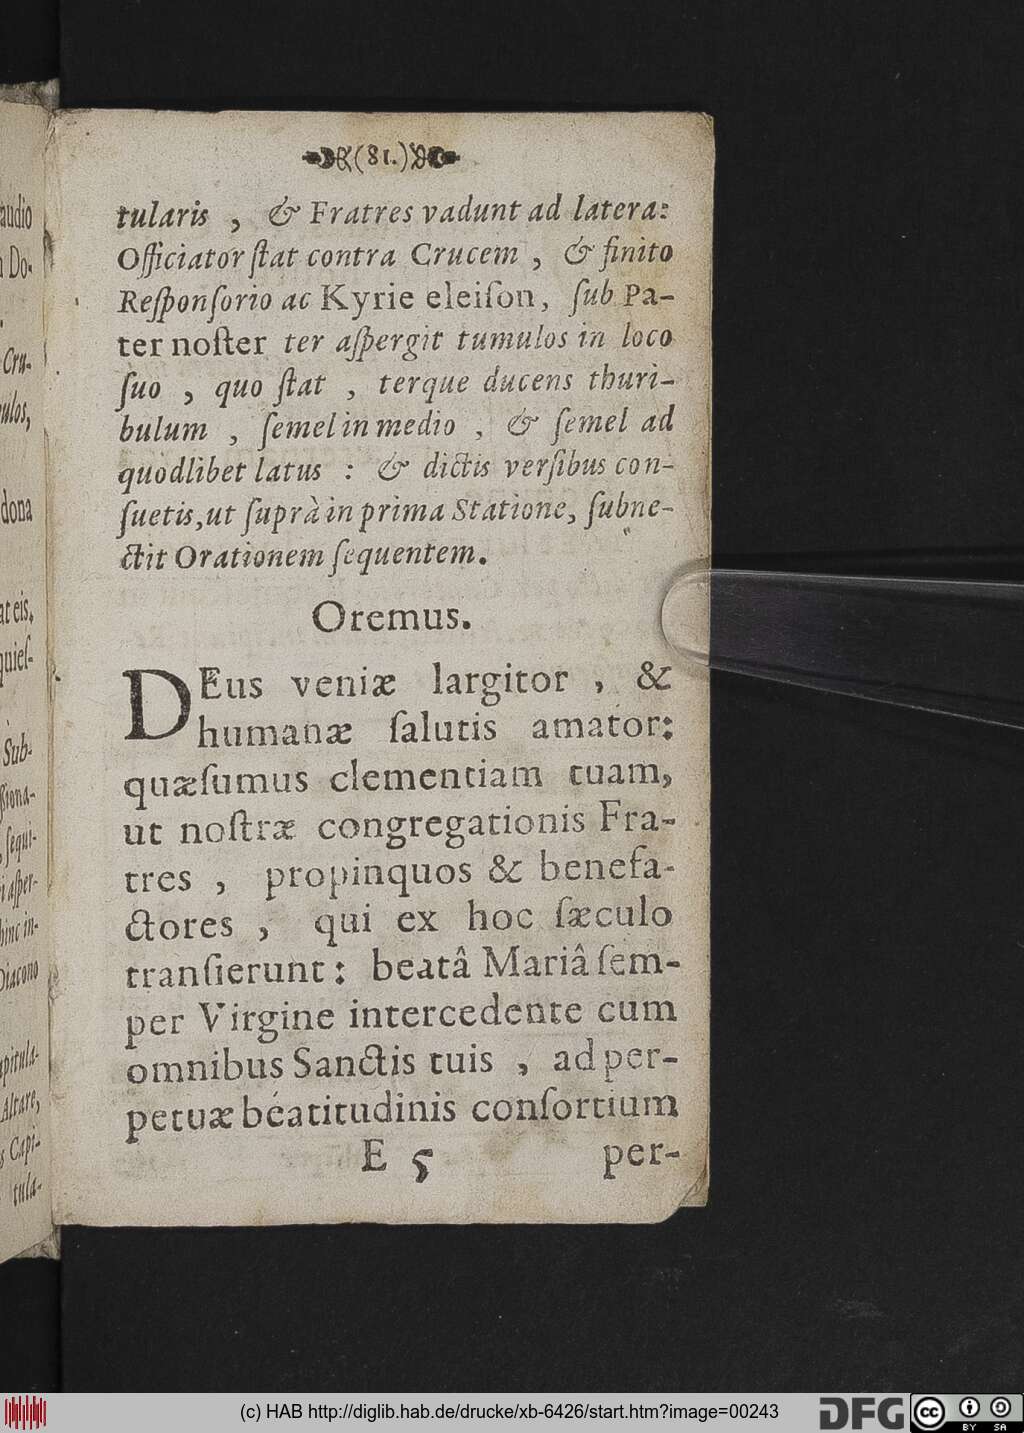 (81.)
tularis , & Fratres vadunt ad latera:
Officiator ſtat contra Crucem , & finito
Reſponſorio ac Kyrie eleiſon, ſub Pa-
ter noſter ter aſpergit tumulos in loco
ſuo , quo ſtat , terque ducens thuri-
bulum , ſemel in medio , & ſemel ad
quodlibet latus : & dictis verſibus con-
ſuetis, ut ſuprà in prima Statione, ſubne-
ctit Orationem ſequentem.
Oremus.
DEus veniæ largitor , &
humanæ ſalutis amator:
quæſumus clementiam tuam,
ut noſtræ congregationis Fra-
tres , propinquos & benefa-
ctores , qui ex hoc ſæculo
tranſierunt: beatâ Mariâ ſem-
per Virgine intercedente cum
omnibus Sanctis tuis , ad per-
petuæ béatitudinis conſortium
E 5 per-
audio
Do-
Cru-
ulos,
dona
at eis.
quieſ-
Sub-
ſſiona-
ſequi-
aſper-
hinc in-
Diacono
apitula-
Altare,
s Capi-
tula-
(c) HAB http://diglib.hab.de/drucke/xb-6426/start.htm?image=00243
DFG
cc
BY SA